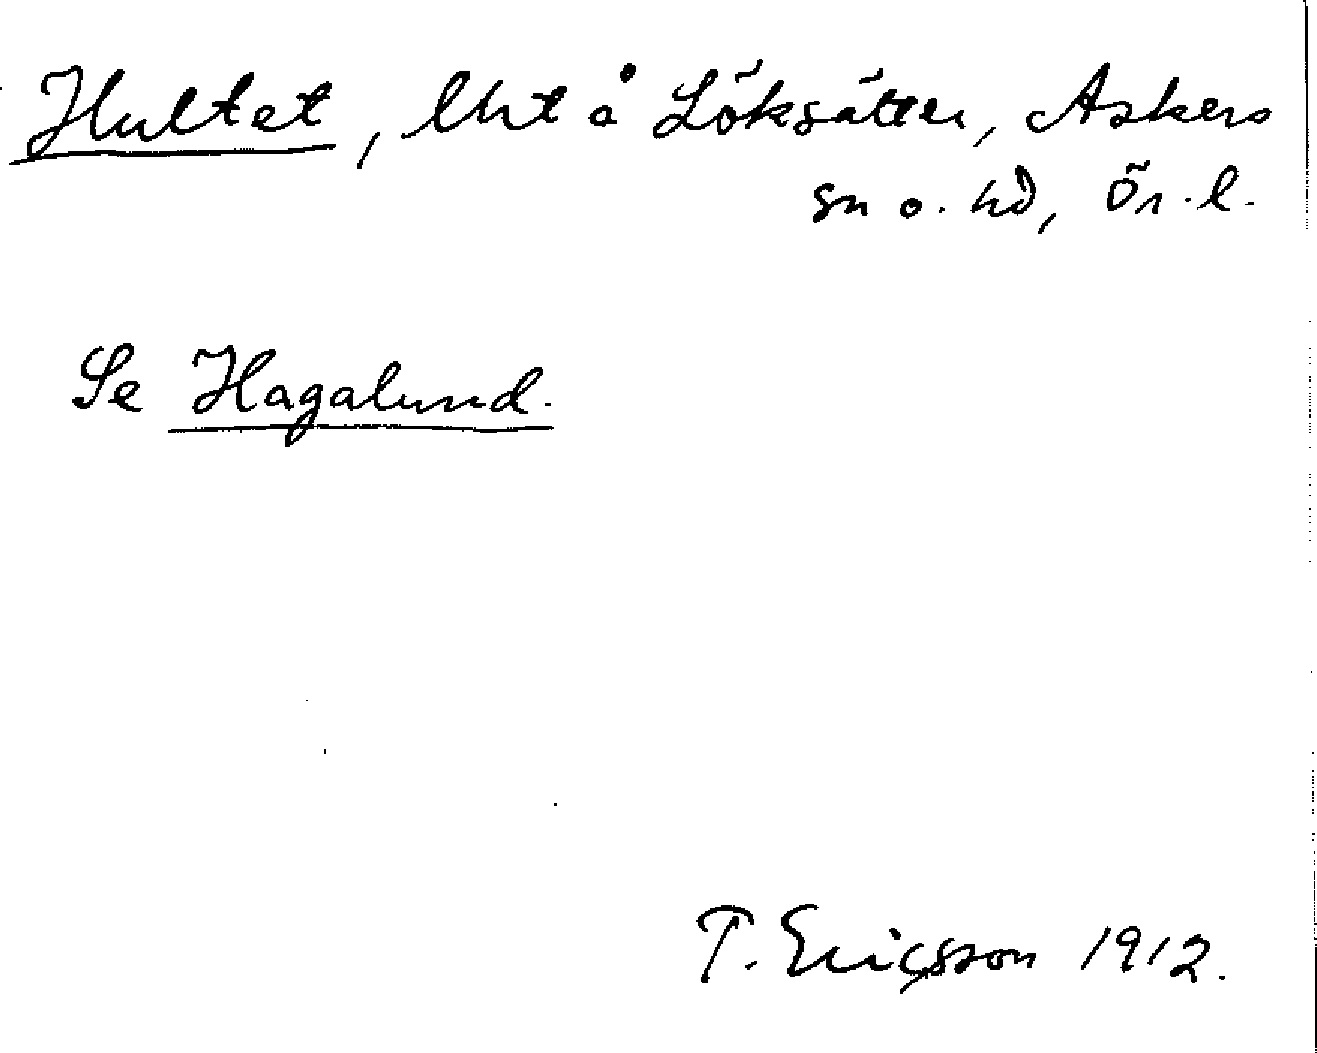 Hultet, lht å Löksätter, Askers
sn o. hd, Ör. l.
Se Hagalund.
T. Ericsson 1912.